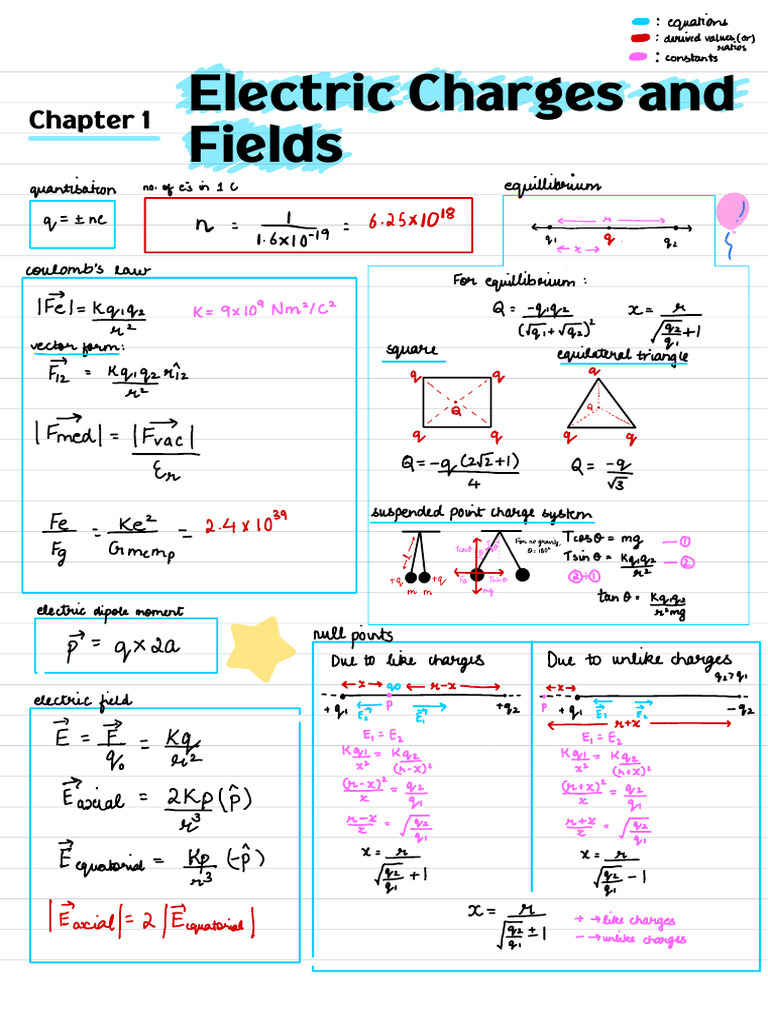 : equations
: derived values (or) ratios
: constants
Chapter 1
Electric Charges and
Fields
quantisation
q = ± ne
no. of e's in 1 C
n = 1/1.6×10^-19 = 6.25×10^18
equillibrium
r
q1 q q2
x
For equillibrium :
Q = -q1q2/(√q1 + √q2)^2
x = r/(√(q2/q1) + 1)
coulomb's law
|Fe| = Kq1q2/r^2
K = 9×10^9 Nm^2/C^2
vector form:
F12 = Kq1q2 r̂12/r^2
|Fmed| = |Fvac|/εr
Fe/Fg = Ke^2/Gmemp = 2.4×10^39
square
q q
Q
q q
Q = -q(2√2+1)/4
equilateral triangle
q
Q
q q
Q = -q/√3
suspended point charge system
l
+q +q
m m
Tcosθ
θ
Fe
Tsinθ
mg
For no gravity,
θ = 180°
Tcosθ = mg —①
Tsinθ = Kq1q2/r^2 —②
②÷①
tanθ = Kq1q2/r^2mg
electric dipole moment
p⃗ = q × 2a
electric field
E⃗ = F⃗/q0 = Kq/r^2
E⃗axial = 2Kp/r^3 (p̂)
E⃗equatorial = Kp/r^3 (-p̂)
|E⃗axial| = 2|E⃗equatorial|
null points
Due to like charges
x q0 r-x
P
+q1 E2 E1 +q2
E1 = E2
Kq1/x^2 = Kq2/(r-x)^2
(r-x)^2/x = q2/q1
r-x/x = √(q2/q1)
x = r/(√(q2/q1) + 1)
Due to unlike charges
q2>q1
x
P +q1 E1 E2 -q2
r+x
E1 = E2
Kq1/x^2 = Kq2/(r+x)^2
(r+x)^2/x = q2/q1
r+x/x = √(q2/q1)
x = r/(√(q2/q1) - 1)
x = r/(√(q2/q1) ± 1)
+ → like charges
- → unlike charges